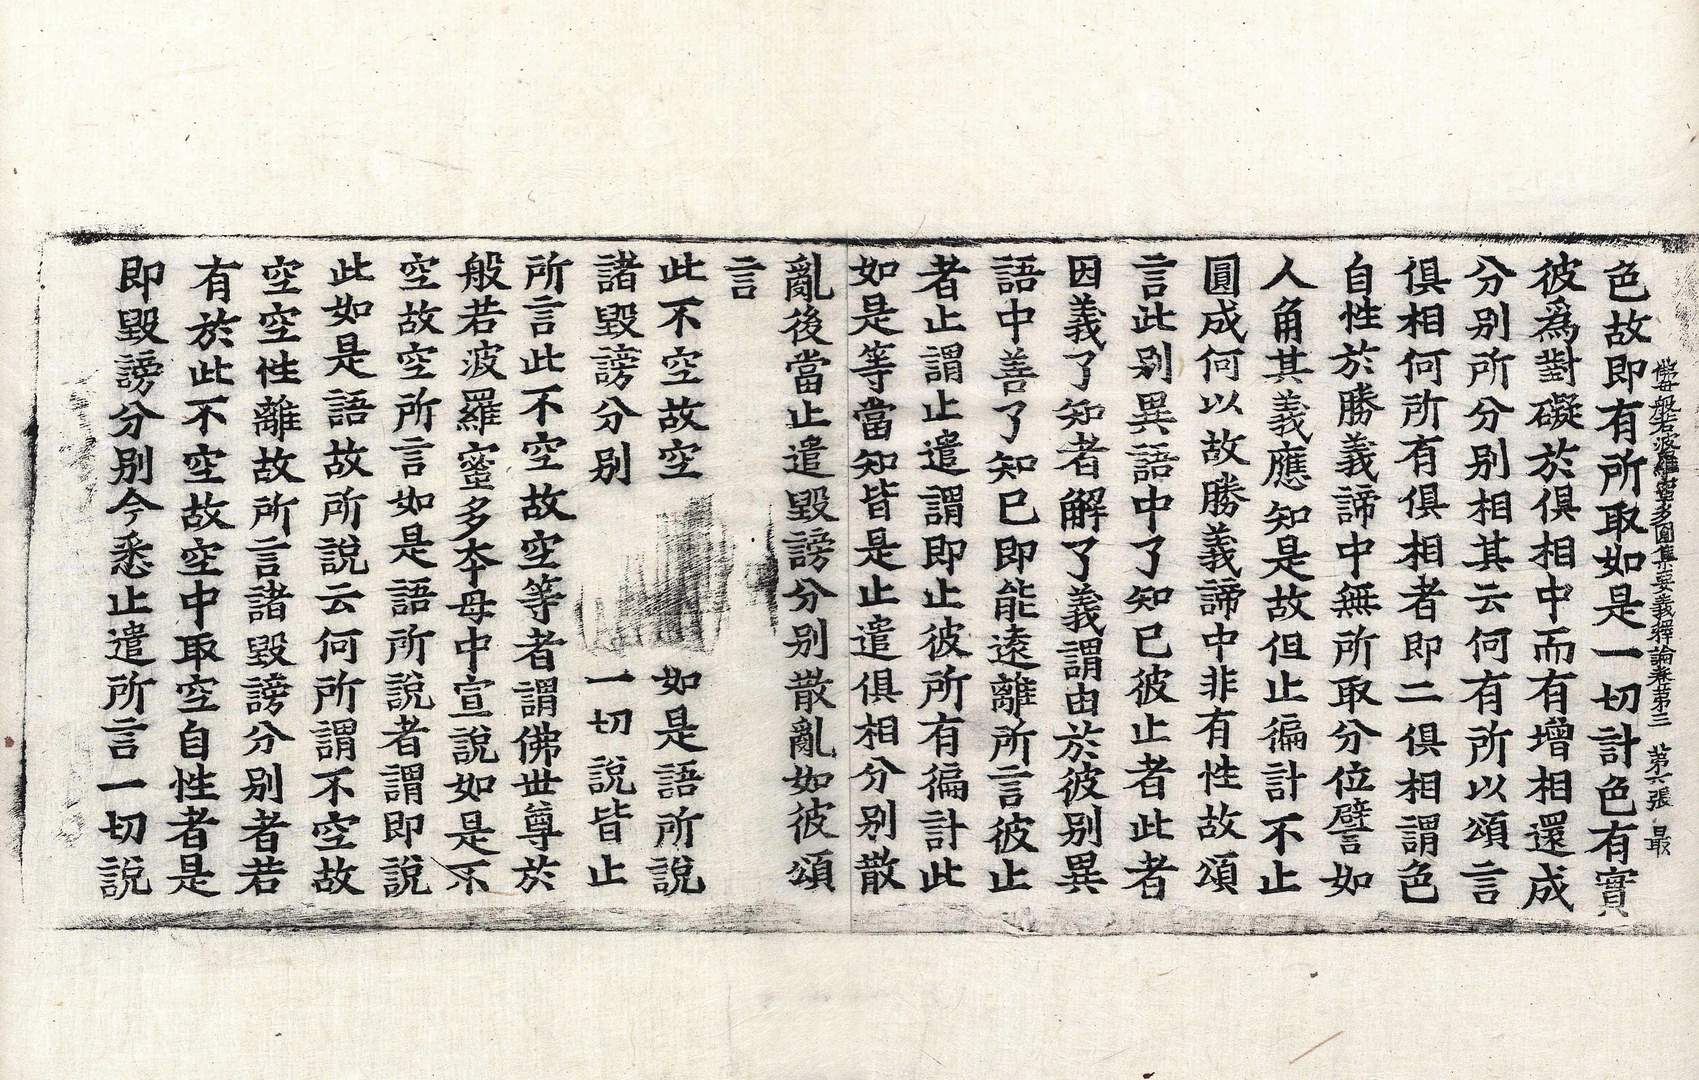 佛母般若波羅蜜多圓集要義釋論卷第三 第六張 最
色故即有所取如是一切計色有實
彼爲對礙於俱相中而有增相還成
分別所分別相其云何有所以頌言
俱相何所有俱相者即二俱相謂色
自性於勝義諦中無所取分位譬如
人角其義應知是故但止徧計不止
圓成何以故勝義諦中非有性故頌
言此別異語中了知已彼止者此者
因義了知者解了義謂由於彼別異
語中善了知已即能遠離所言彼止
者止謂止遣謂即止彼所有徧計此
如是等當知皆是止遣俱相分別散
亂後當止遣毀謗分別散亂如彼頌
言
此不空故空 如是語所說
諸毀謗分別 一切說皆止
所言此不空故空等者謂佛世尊於
般若波羅蜜多本母中宣說如是不
空故空所言如是語所說者謂即說
此如是語故所說云何所謂不空故
空空性離故所言諸毀謗分別者若
有於此不空故空中取空自性者是
即毀謗分別今悉止遣所言一切說